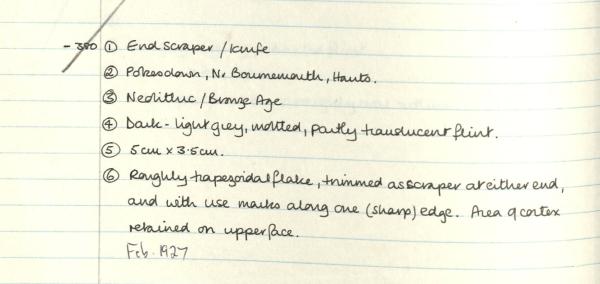 - 380 ① End Scraper / Knife
② Pokesdown, Nr Bournemouth, Hants.
③ Neolithic / Bronze Age
④ Dark - light grey, mottled, partly translucent flint.
⑤ 5cm x 3.5cm.
⑥ Roughly trapezoidal flake, trimmed as scraper at either end,
and with use marks along one (sharp) edge. Area of cortex
retained on upper face.
Feb. 1927